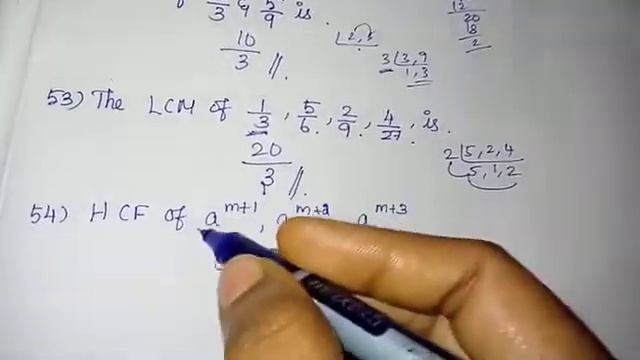 2/3 & 5/9 is.
10/3 //.
2, 5
3 | 3, 9
1, 3
20
18
2
53) The LCM of 1/3, 5/6, 2/9, 4/27, is.
20/3 //.
2 | 5, 2, 4
5, 1, 2
54) HCF of a^{m+1}, a^{m+2} a^{m+3}